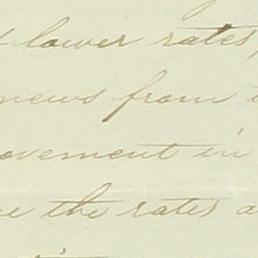 lower rates,
news from
ovement in
the rates a